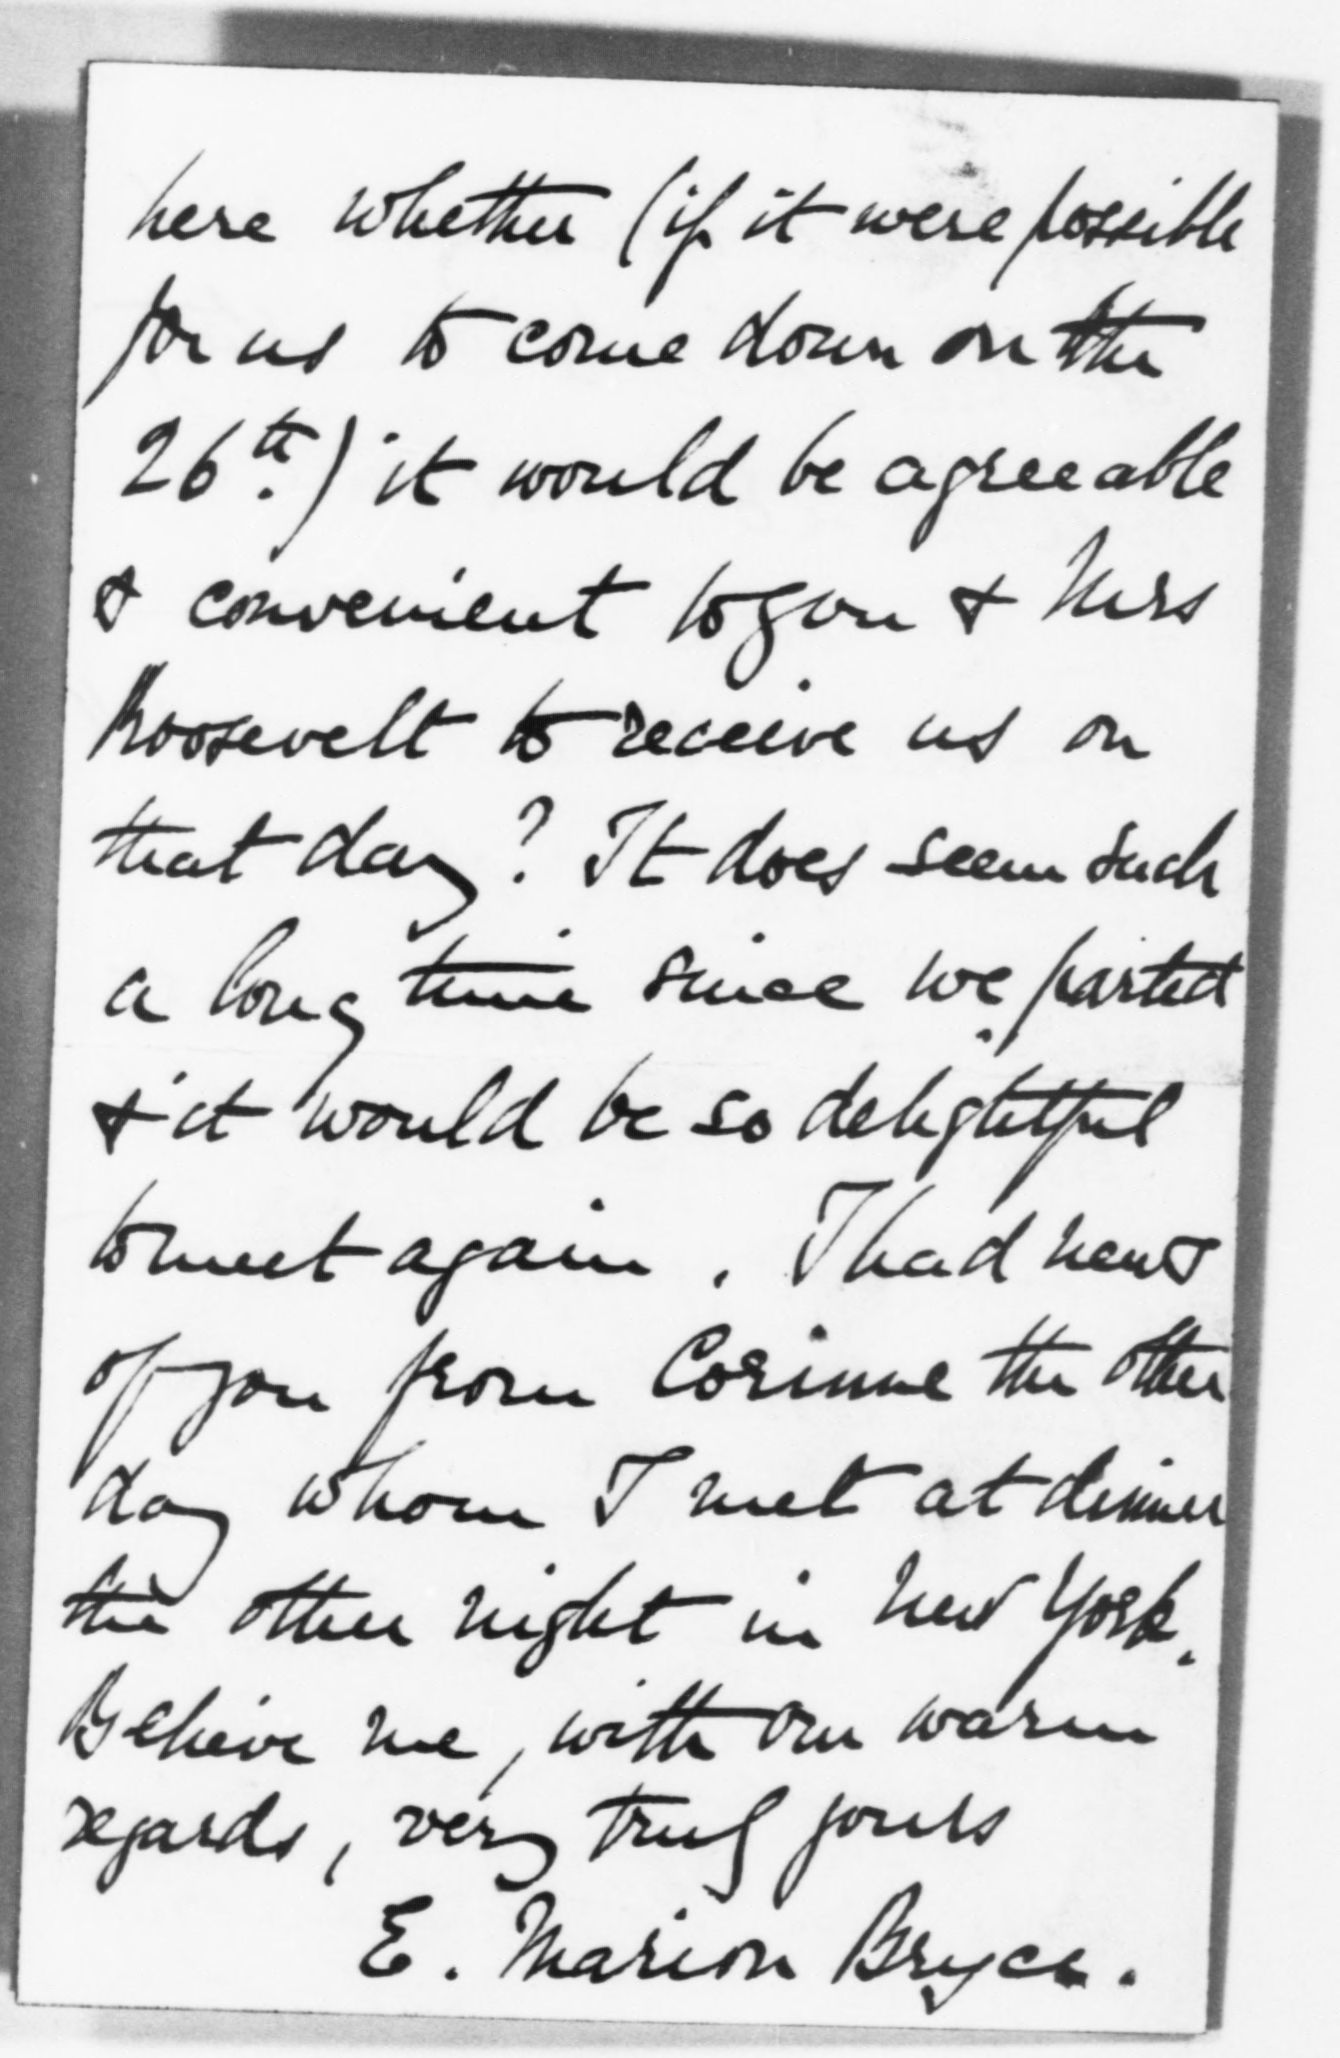 here whether (if it were possible
for us to come down on the
26th.) it would be agreeable
& convenient to you & Mrs
Roosevelt to receive us on
that day? It does seem such
a long time since we parted
& it would be so delightful
to meet again. I had news
of you from Corinne the other
day whom I met at dinner
the other night in New York.
Believe me, with our warm
regards, very truly yours
E. Marion Bryce.